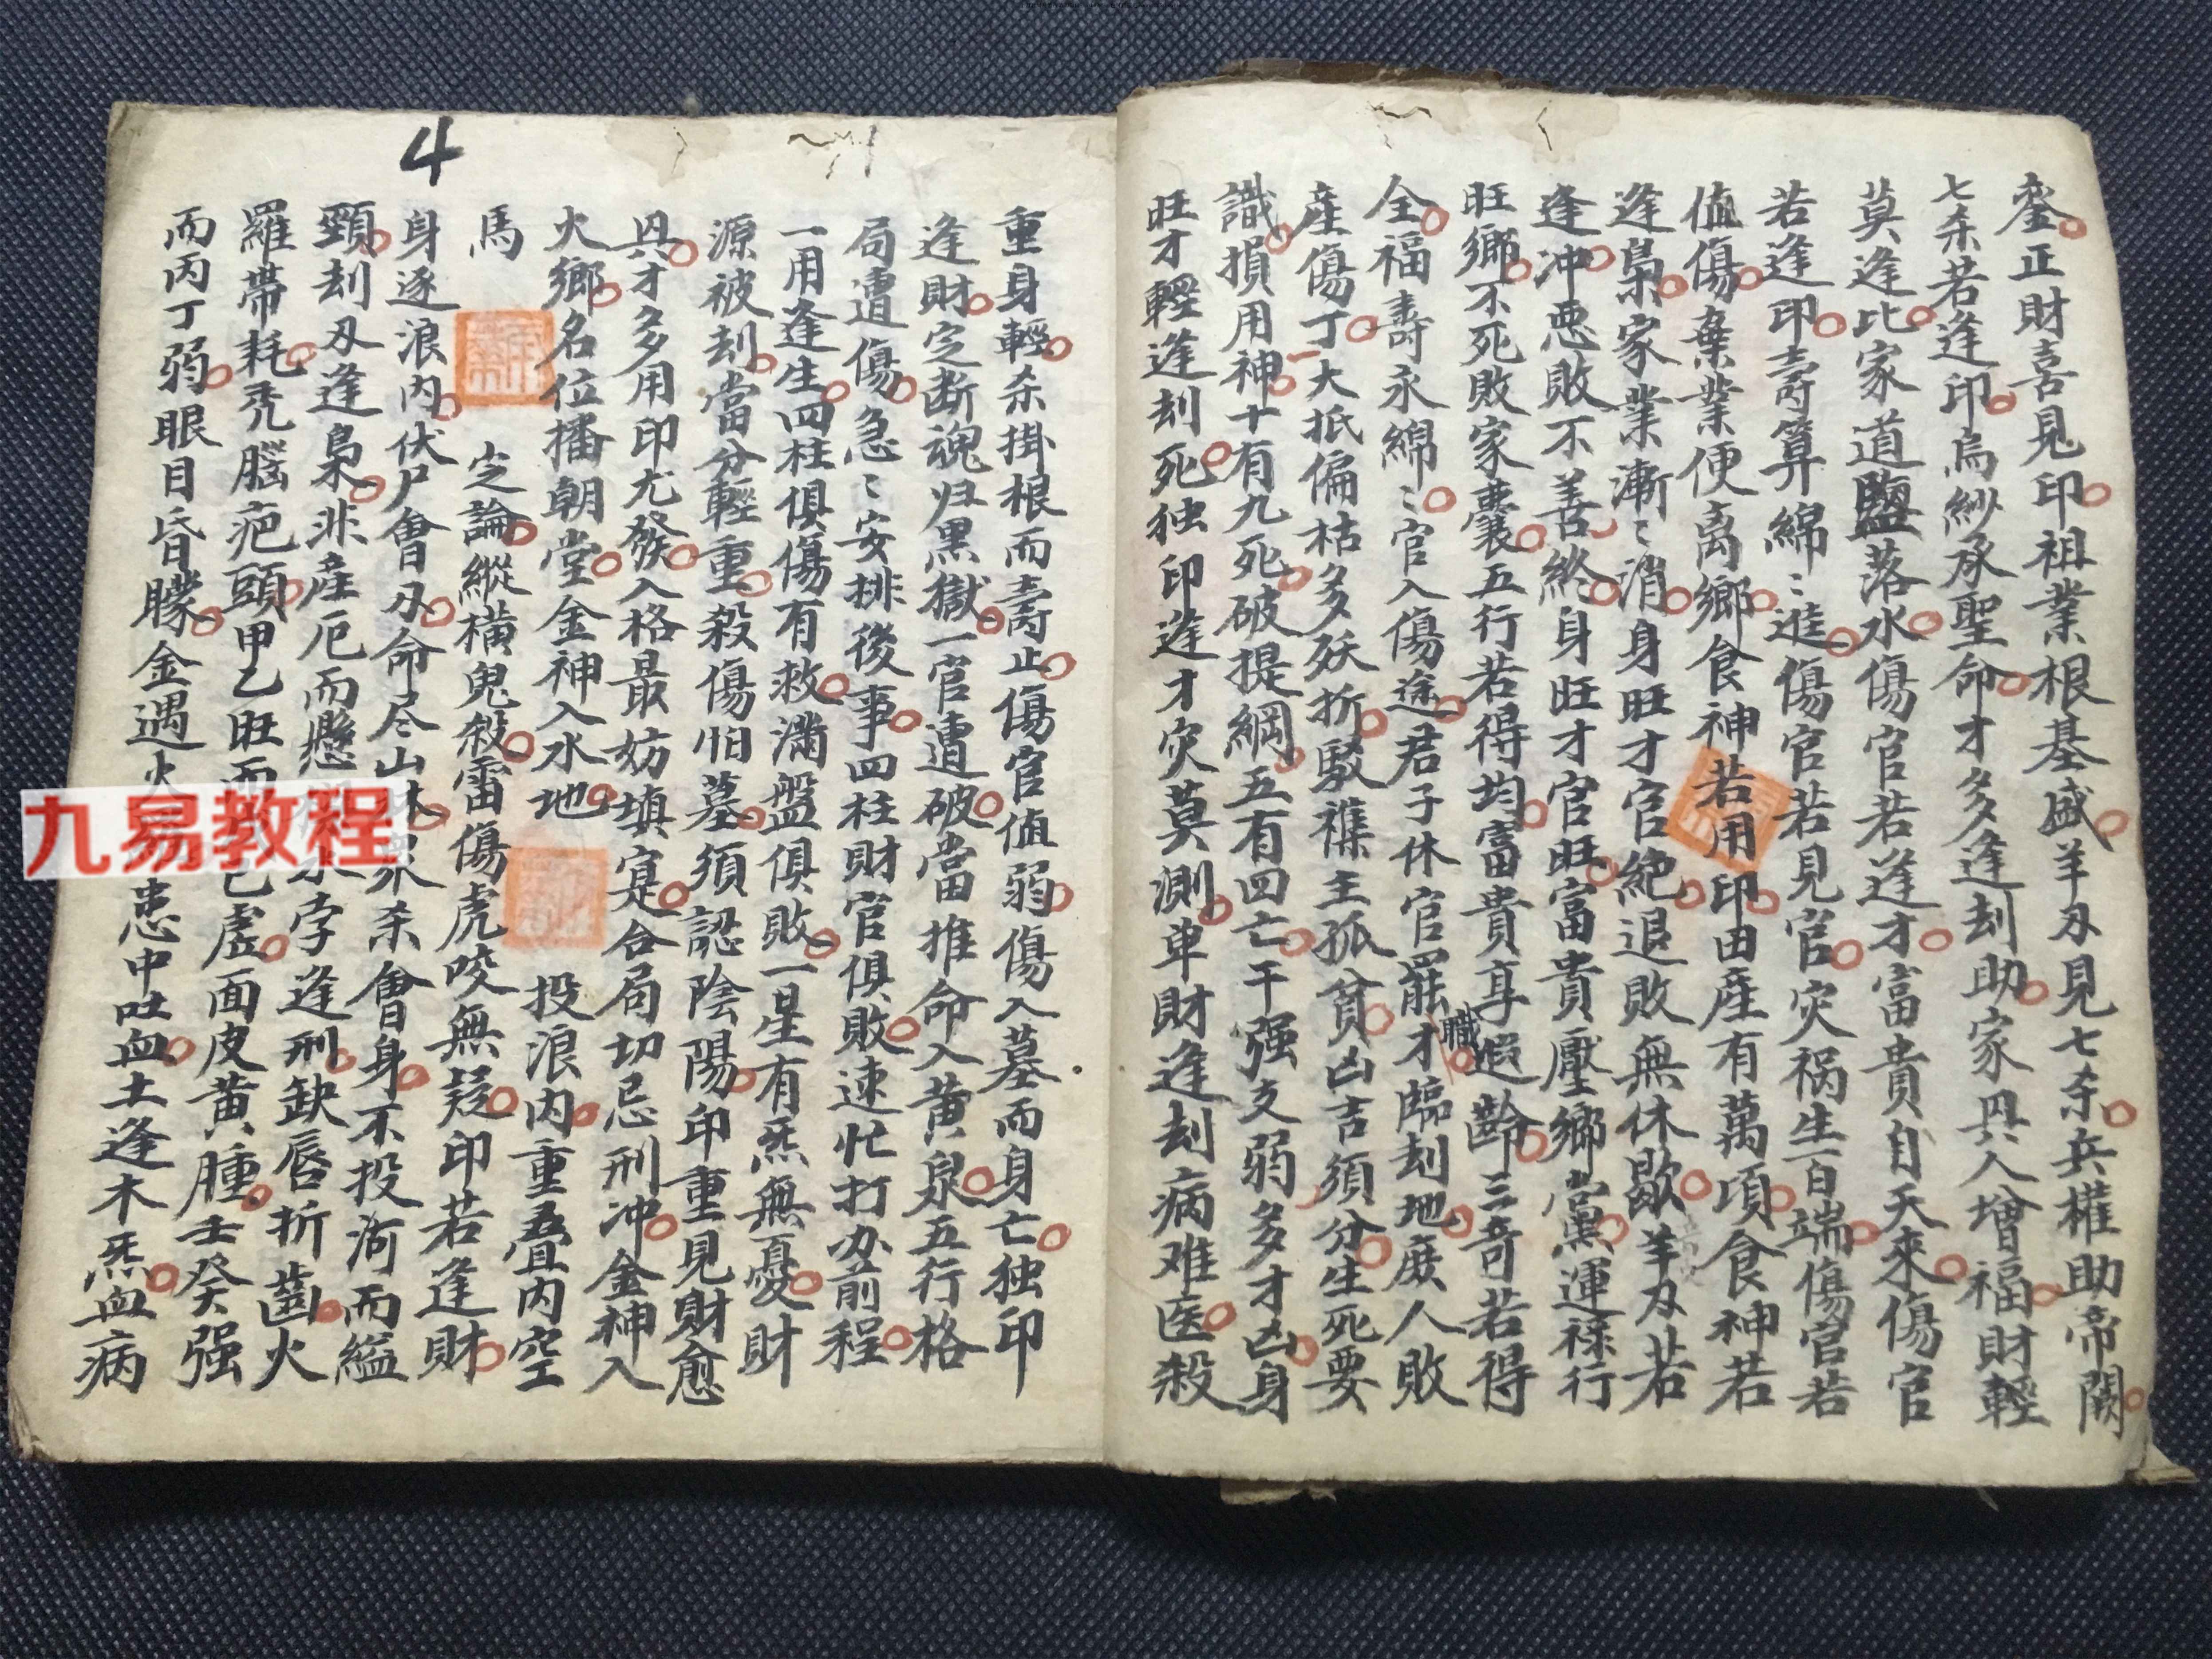 銮正財喜見印祖業根基盛羊刃見七杀兵權助帝闕
七杀若逢印烏紗承聖命才多逢刦助家興人增福財輕
莫逢比家道鹽落水傷官若逢才富貴自天來傷官
若逢印壽算綿〻進傷官若見官灾祸生百端傷官若
值傷棄業便离鄉食神若用印田産有萬項食神若
逢梟家業漸〻消身旺才官絶退敗無休歇羊刃若
逢冲惡敗不善終身旺才官旺富貴壓鄉黨運祿行
旺鄉不死敗家囊五行若得均富貴享遐齡三奇若得
全福壽永綿〻官入傷途君子休官罷職才臨刦地庶人敗
産傷丁大抵偏枯多殀折駁襍主孤貧凶吉須分生死要
識損用神十有九死破提綱五有四亡干强支弱多才凶身
旺才輕逢刦死独印逢才灾莫測車財逢刦病难医殺
重身輕杀掛根而壽止傷官值弱傷入墓而身亡独印
逢財定断魂归黑獄一官遭破當推命入黄泉五行格
局遭傷急〻安排後事四柱財官俱敗速忙打办前程
一用逢生四柱俱傷有救滿盤俱敗一星有炁無憂財
源被刦當分輕重殺傷怕墓須認陰陽印重見財愈
興才多用印尢發入格最妨填寔合局切忌刑冲金神入
火鄉名位播朝堂金神入水地投浪内重叠内空
馬
定論縱横鬼殺雷傷虎咬無疑印若逢財
身逐浪内伏尸會刃命尽山林眾杀會身不投河而縊
頸刦刃逢梟非産厄而懸 水孛逢刑缺唇折齒火
羅帶耗秃腦疤頭甲乙旺而 己虚面皮黄腫壬癸强
而丙丁弱眼目昏矇金遇火 患中吐血土逢木炁血病
4
九易教程